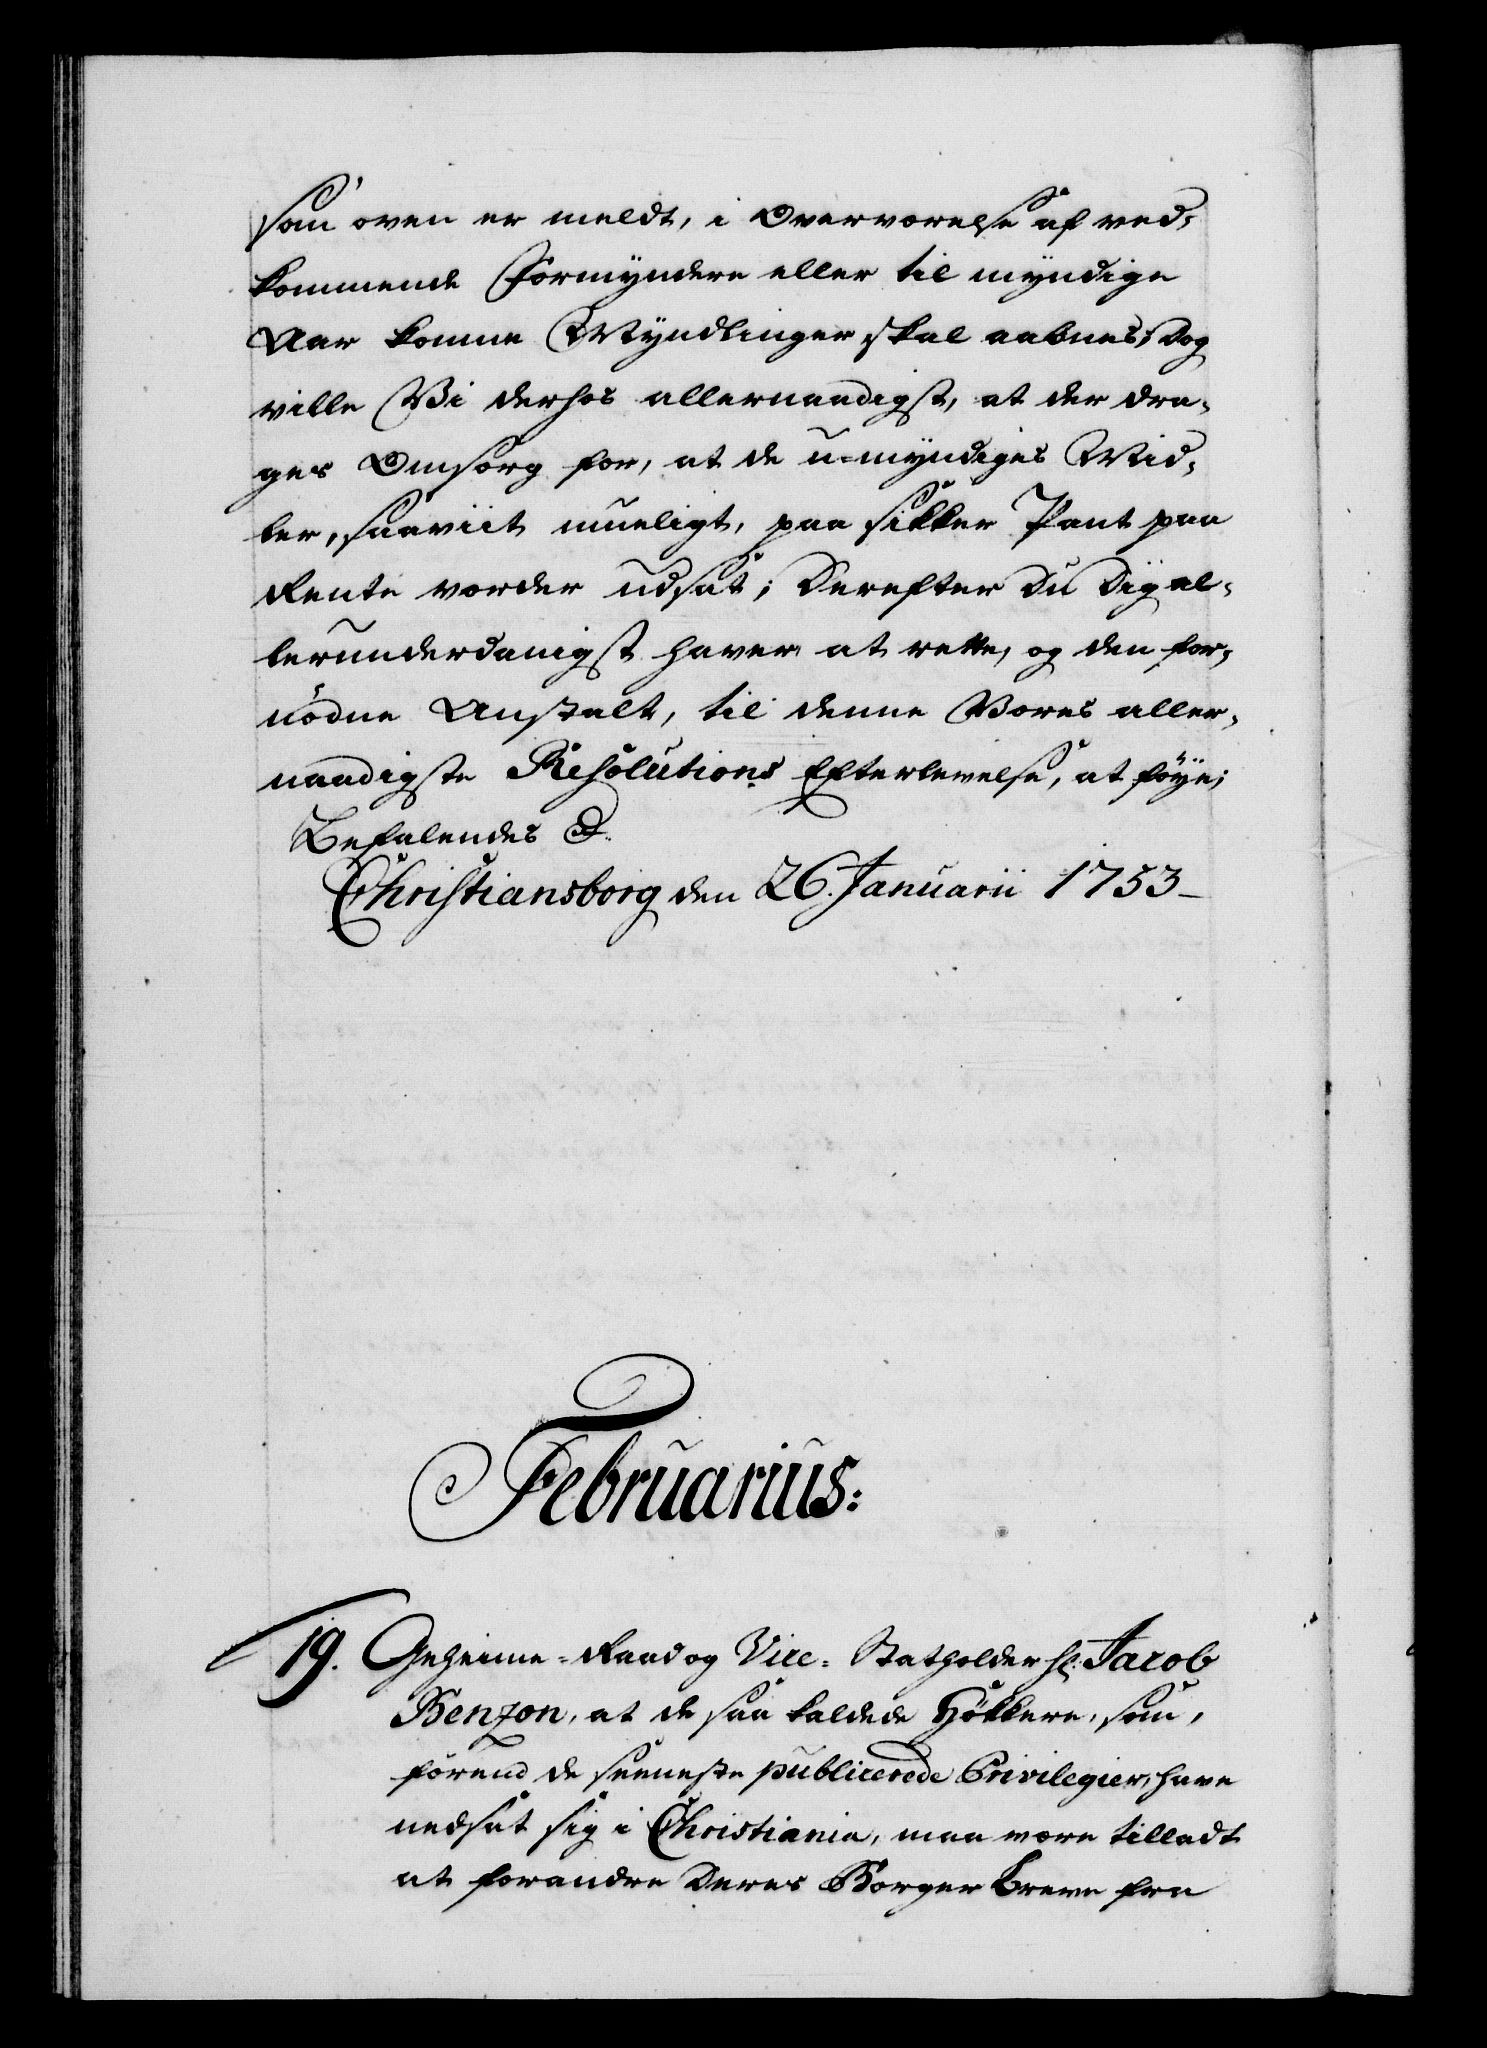 som oven er meldt, i Overværelse af ved-
kommende Formyndere eller til myndige
Aar komne Myndlinger skal aabnes; Dog
ville Vi derhos allernaadigst, at der dra-
ges Omsorg for, at de u-myndiges Mid-
ler, saaviit mueligt, paa sikker Pant paa
Rente vorder udsat; Derefter Du Dig al-
lerunderdanigst haver at rette, og den for-
nödne Anstalt, til denne Vores aller-
naadigste Resolutions Efterlevelse, at föÿe;
Befalendes &.
Christiansborg den 26. Januarii 1753-
Februarius:
19. Geheime-Raad og Vice-Statholder Hr: Jacob
Benzon, at de saa kaldede Hökkere, som,
förend de seeneste publicerede Privilegier, have
nedsat sig i Christiania, maa være tilladt
at forandre Deres Borger Breve fra